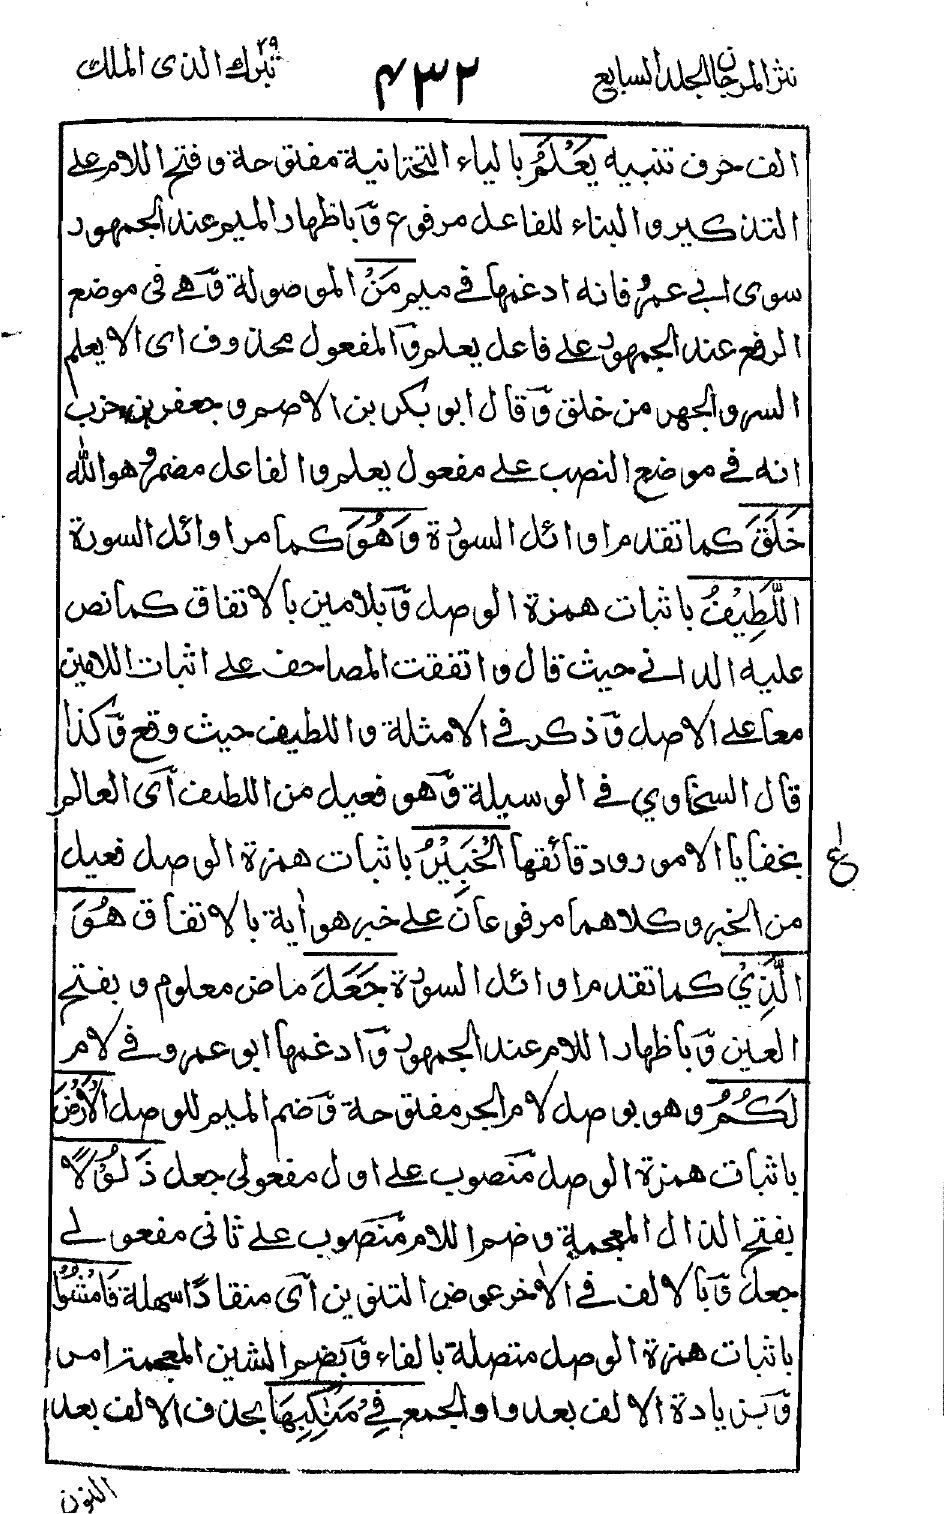 نثر المرجان المجلد السابع ٤٣٢ تبرك الذى ٢٩ الملك
الف حرف تنبيه يَعْلَمُ بالياء التحتانية مفتوحة وفتح اللام على
التذكير والبناء للفاعل مرفوع وباظهار الميم عند الجمهور
سوى ابي عمرو فانه ادغمها في ميم مَنْ الموصولة وهي فى موضع
الرفع عند الجمهور على فاعل يعلم والمفعول محذوف اى الا يعلم
السر والجهر من خلق وقال ابو بكر بن الاصم وجعفر بن حرب
انه في موضع النصب على مفعول يعلم والفاعل مضمر وهو الله
خَلَقَ كما تقدم اوائل السورة وَهُوَ كما مر اوائل السورة
اللَّطِيْفُ باثبات همزة الوصل وبلامين بالاتفاق كما نص
عليه الدانى حيث قال واتفقت المصاحف على اثبات اللامين
معا على الاصل وذكر في الامثلة واللطيف حيث وقع وكذا
قال السخاوي في الوسيلة وهو فعيل من اللطيف آى العالم
بخفايا الامور ودقائقها الْخَبِيْرُ باثبات همزة الوصل فعيل
من الخبر وكلاهما مرفوعان على خبر هو اٰية بالاتفاق هُوَ
الَّذِيْ كما تقدم اوائل السورة جَعَلَ ماض معلوم وبفتح
العين وباظهار اللام عند الجمهور وادغمها ابو عمرو في لام
لَكُمُ وهو بوصل لام الجر مفتوحة وضم الميم للوصل الْاَرْضَ
باثبات همزة الوصل منصوب على اول مفعولى جعل ذَلُوْلًا
بفتح الذال المعجمة وضم اللام منصوب على ثانى مفعولى
جعل وبالالف في الاٰخر عوض التنوين آى منقادًا سهلة فَامْشُوْا
باثبات همزة الوصل متصلة بالفاء وبضم الشين المعجمة امر
وبزيادة الالف بعد واو الجمع فِيْ مَنَاكِبِهَا بحذف الالف بعد
النون
ع